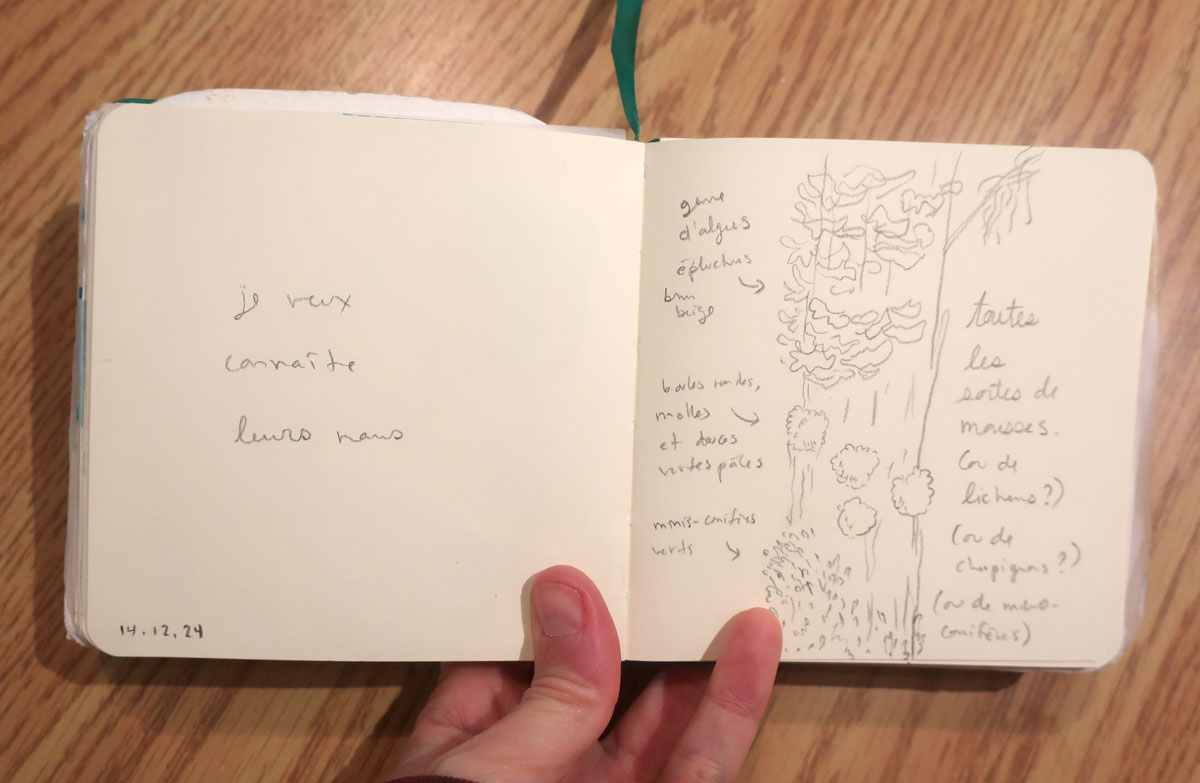 je veux
connaître
leurs noms
14.12.24
genre
d'algues
épluchées
brun
beige
boules rondes,
molles
et douces
vertes pâles
minis-conifères
verts
toutes
les
sortes de
mousses.
(ou de
lichens?)
(ou de
champignons?)
(ou de micro-
conifères)